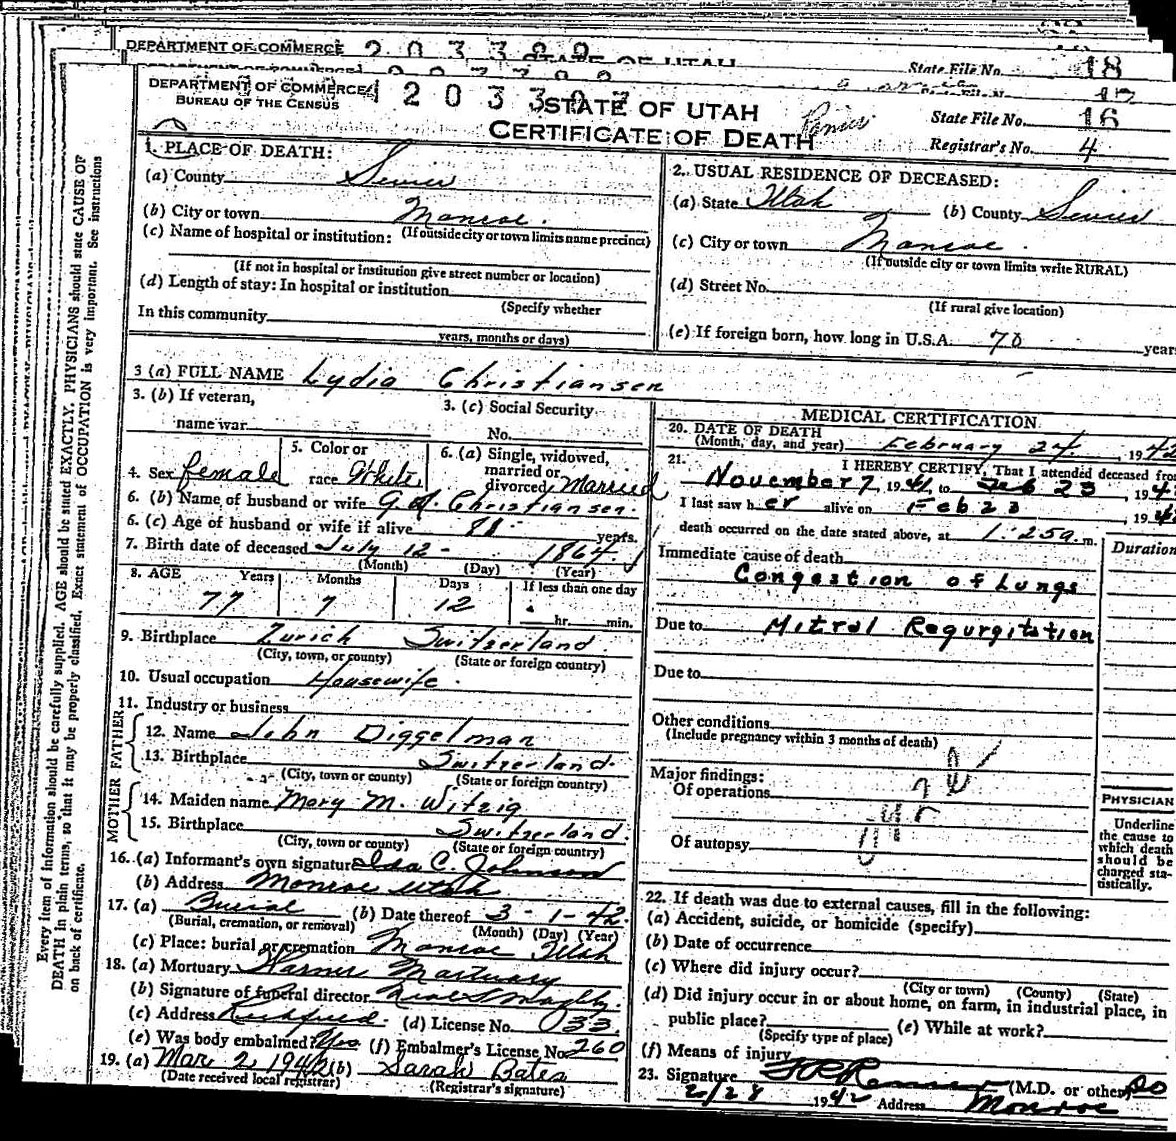 DEPARTMENT OF COMMERCE
STATE OF UTAH
State File No. 18
DEPARTMENT OF COMMERCE
BUREAU OF THE CENSUS
STATE OF UTAH
CERTIFICATE OF DEATH
State File No. 16
Registrar's No. 4
1. PLACE OF DEATH:
(a) County Sevier
(b) City or town Monroe.
(If outside city or town limits name precinct)
(c) Name of hospital or institution:
(If not in hospital or institution give street number or location)
(d) Length of stay: In hospital or institution
(Specify whether
In this community
years, months or days)
2. USUAL RESIDENCE OF DECEASED:
(a) State Utah (b) County Sevier
(c) City or town Monroe.
(If outside city or town limits write RURAL)
(d) Street No.
(If rural give location)
(e) If foreign born, how long in U.S.A. 70 years
3 (a) FULL NAME Lydia Christiansen
3. (b) If veteran,
name war
3. (c) Social Security
No.
4. Sex female
5. Color or
race White
6. (a) Single, widowed,
married or
divorced Married
6. (b) Name of husband or wife G. A. Christiansen.
6. (c) Age of husband or wife if alive 81 years.
7. Birth date of deceased July 12 - 1864
(Month) (Day) (Year)
8. AGE Years Months Days If less than one day
77 7 12 hr. min.
9. Birthplace Zurich Switzerland.
(City, town, or county) (State or foreign country)
10. Usual occupation Housewife.
11. Industry or business
FATHER
12. Name John Diggelman
13. Birthplace Switzerland.
(City, town or county) (State or foreign country)
MOTHER
14. Maiden name Mary M. Witzig
15. Birthplace Switzerland.
(City, town or county) (State or foreign country)
16. (a) Informant's own signature Ida C. Johnson
(b) Address Monroe Utah
17. (a) Burial (b) Date thereof 3 - 1 - 42
(Burial, cremation, or removal) (Month) (Day) (Year)
(c) Place: burial or cremation Monroe Utah
18. (a) Mortuary Mortuary
(b) Signature of funeral director
(c) Address Richfield. (d) License No. 033
(e) Was body embalmed? Yes (f) Embalmer's License No. 260
19. (a) Mar 2 1942 (b) Sarah Bates
(Date received local registrar) (Registrar's signature)
MEDICAL CERTIFICATION
20. DATE OF DEATH
(Month, day, and year) February 24. 1942
21. I HEREBY CERTIFY, That I attended deceased from
November 7, 1941, to Feb 23, 194
I last saw her alive on Feb 23, 194
death occurred on the date stated above, at 1:25 a. m.
Duration
Immediate cause of death
Congestion of Lungs
Due to Mitral Regurgitation
Due to
Other conditions
(Include pregnancy within 3 months of death)
Major findings:
Of operations
Of autopsy
PHYSICIAN
Underline
the cause to
which death
should be
charged sta-
tistically.
22. If death was due to external causes, fill in the following:
(a) Accident, suicide, or homicide (specify)
(b) Date of occurrence
(c) Where did injury occur?
(City or town) (County) (State)
(d) Did injury occur in or about home, on farm, in industrial place, in
public place? (e) While at work?
(Specify type of place)
(f) Means of injury
23. Signature (M.D. or other) DO
2/28 1942 Address Monroe
Every item of information should be carefully supplied. AGE should be stated EXACTLY. PHYSICIANS should state CAUSE OF
DEATH in plain terms, so that it may be properly classified. Exact statement of OCCUPATION is very important. See instructions
on back of certificate.